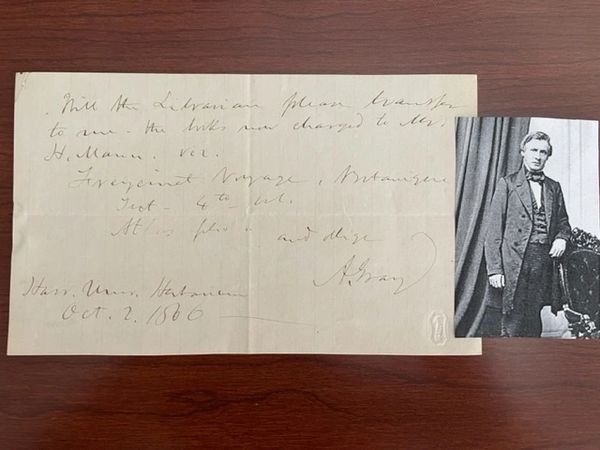 Will the Librarian please transfer
to me - the books now charged to Mr.
H. Mann. viz.
Freycinet Voyage, Botanique
Text - 4to
Atlas folio
and oblige
A. Gray
Harv. Univ. Herbarium
Oct. 2. 1866